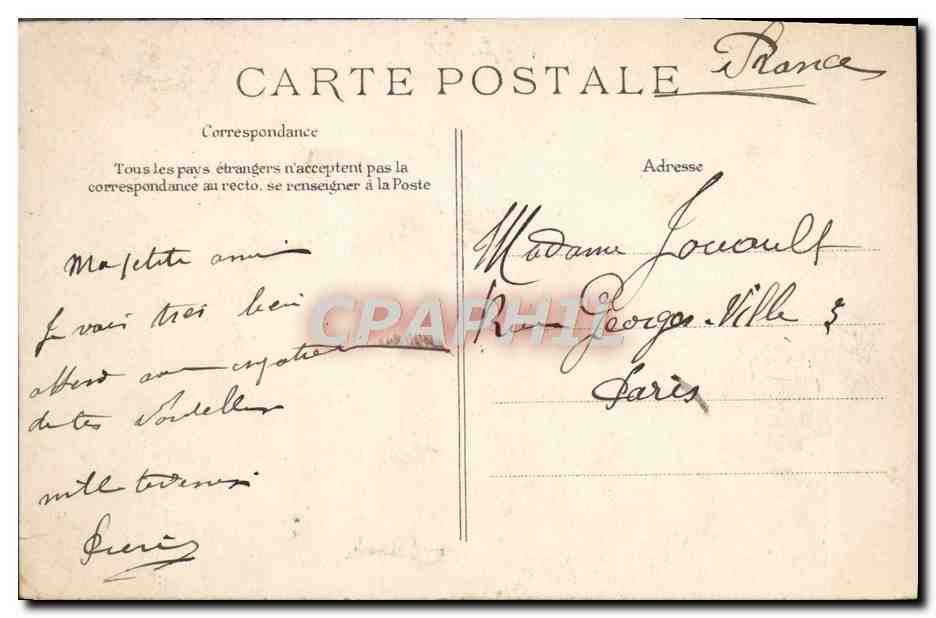 France
CARTE POSTALE
Correspondance
Tous les pays étrangers n'acceptent pas la
correspondance au recto, se renseigner à la Poste
Ma petite amie
Je vais très bien
attend avec
de tes nouvelles
mille tendresses
Adresse
Madame Jouault
Rue Georges-Ville 3
Paris
CPAPHIL